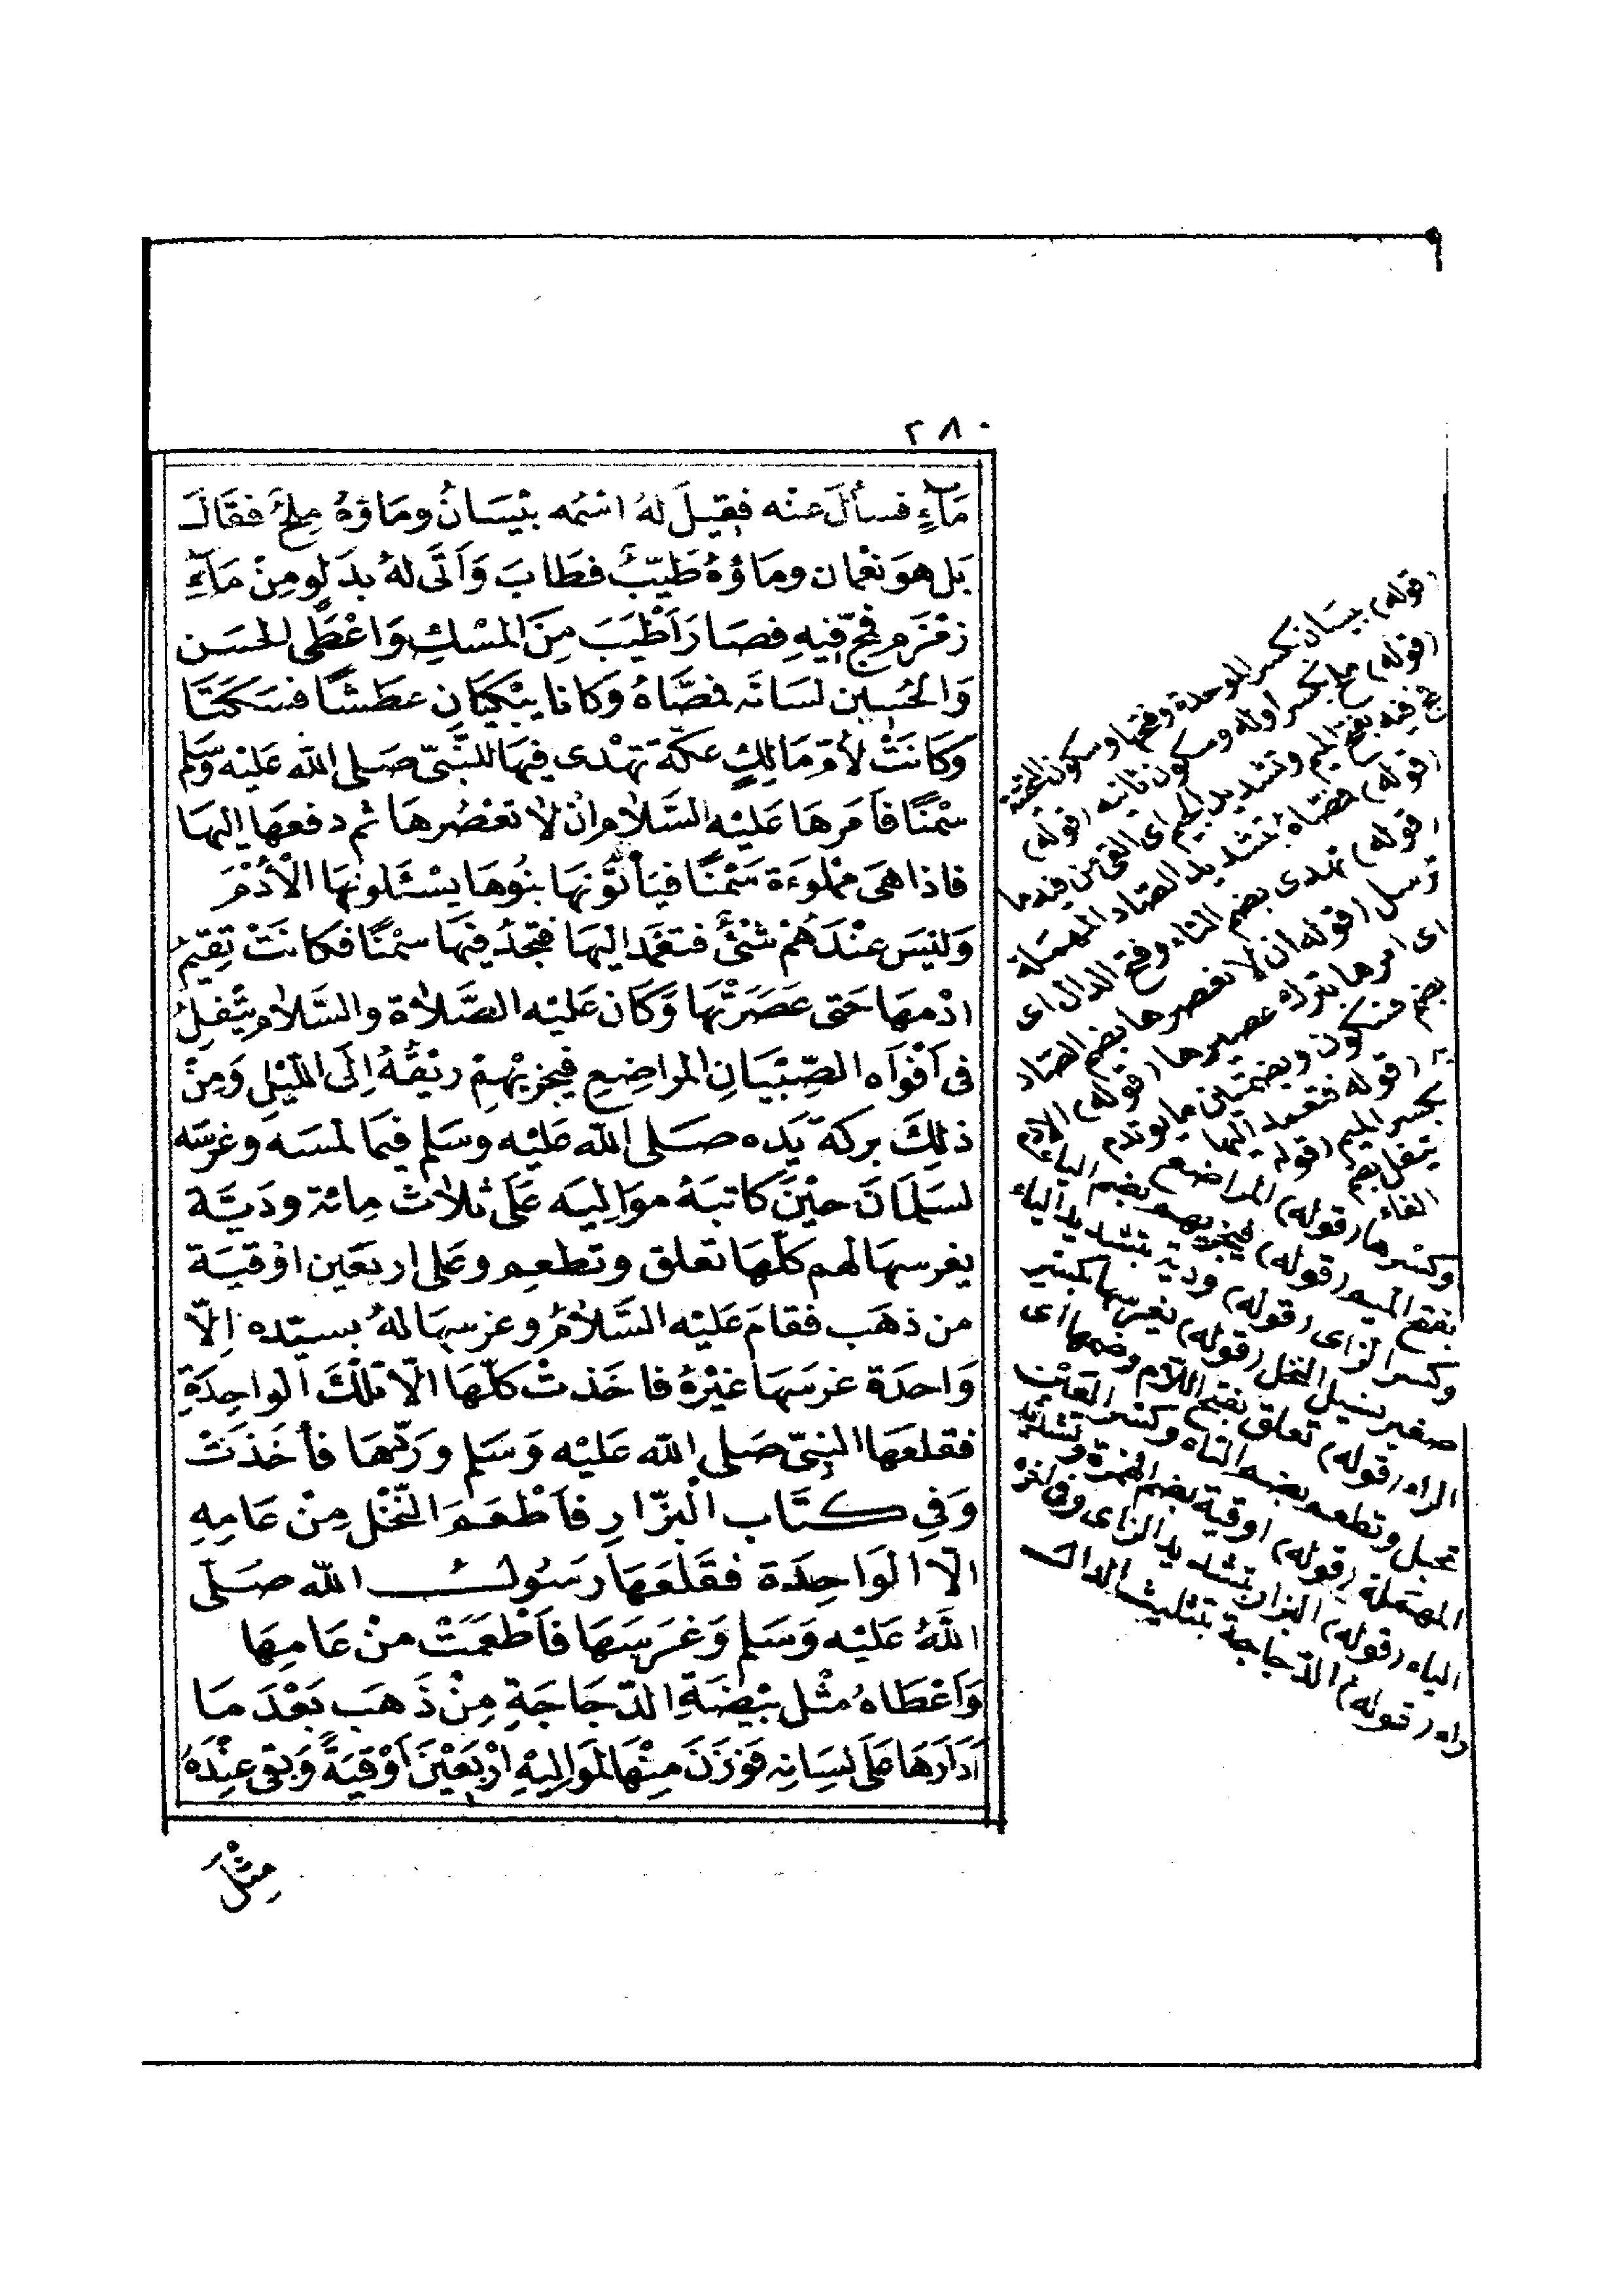 ٢٨٠
مَاءٍ فسأل عنه فقيل لهُ اسْمُه بَيْسَانُ ومَاؤهُ مِلحٌ فقَالَ
بَل هوَ نعْمان ومَاؤهُ طَيّبٌ فطَابَ وَأتَى لهُ بدَلوٍ مِنْ مَاءِ
زمْزم فمَجّ فيهِ فصَارَ أطْيَبَ مِنَ المسْكِ وَاعْطَى الحسَن
وَالحُسين لسَانَه فمصَّاهُ وَكانا يبْكيَانِ عطَشًا فسَكتَا
وَكانَتْ لأمّ مَالكٍ عكّة تهْدى فيهَا للنَّبىّ صَلى الله عَليْه وَسَلم
سْمنًا فأمَرهَا عَليْه السَّلام انْ لاتعْصُرهَا ثم دفعهَا اليهَا
فاذا هىَ مْملوءَة سَمْنًا فيأتُونهَا بنُوهَا يسْئلونهَا الْأدْمَ
وَليسَ عنْدَهُمْ شئٌ فتعْمد اليهَا فتجدُ فيهَا سمْنًا فكانَتْ تقيمُ
ادْمهَا حَتى عَصَرَتْهَا وَكَان عَليْه الصَّلاة والسَّلام يتْفلُ
فى أفْوَاه الصّبْيَانِ المراضعِ فيجزيْهمْ ريْقُهُ إلَى الليْلِ وَمِنْ
ذلِكَ بركة يَده صَلى الله عليْه وسَلم فيمَا لمسَه وغرسَه
لسَلمَانَ حيْنَ كاتبَهُ موَاليَه عَلَى ثلاث مِائة وديَّة
يغرسهَا لهم كلّهَا تعلق وتطعم وعَلى اربَعَين اوْقيَة
من ذهَب فقامَ عَليْه السَّلامُ وغرسهَا لهُ بسيّده إلّا
وَاحدَة غرسَهَا غيْرُهُ فاخَذتْ كلّهَا الّا تلْكَ الواحِدَةِ
فقلعَها النبىّ صَلى الله عَليْه وَسَلم وَردّهَا فأخَذَتْ
وَفِي كتَاب الْبزّارِ فأطْعَمَ النّخْل مِنْ عَامِهِ
الّا الوَاحِدَة فقَلَعَهَا رَسُول الله صَلَّى
اللهُ عَليْه وَسَلم وَغرَسَهَا فأطْعَمَتْ منْ عَامِهَا
وَأعْطَاهُ مثْل بيْضَةِ الدّجَاجَةِ مِنْ ذَهَب بَعْدَ مَا
أدَارَهَا عَلَى لسَانِه فوَزَنَ مِنْهَا لموَاليْهِ ارْبَعيْنَ أوْقيَةً وَبقى عنْدَهُ
مِثْلَ
(قوله) بيسان بكسر الموحدة وفتحها وسكون التحتية
(قوله) ملح بكسر اوله وسكون ثانيه (قوله)
فمج فيه بفتح الميم وتشديد الجيم اى القى من فيه ما
(قوله) فمصّاه بتشديد الصّاد المهمَلة
(قوله) تهدى بضم التاء وفتح الدال اى
ترسل (قوله ان لا تعصرها بضم الصّاد
اى امرها بترك عصيرها (قوله) الادم
بضم فسكون وبضمتين مايوتدم
به (قوله فتعمد اليها
بكسر الميم (قوله
يتفل بضم
الفاء
وكسرها (قوله) المراضع
بفتح الميم (قوله) فيجزيهم بضم الياء
وكسر الزاى (قوله) ودية بتشديد الياء
صغير بنسيل النخل (قوله) يغرسها بكسر
الراء (قوله) تعلق بفتح اللام وضمها اى
تحبل وتطعم بضم التاء وكسر العين
المهمَلة (قوله) اوقية بضم الهمزة وتشديد
الياء (قوله) البزار بتشديد الزاى وفى اخره
راء (قوله) الدّجاجة بتثليث الدال